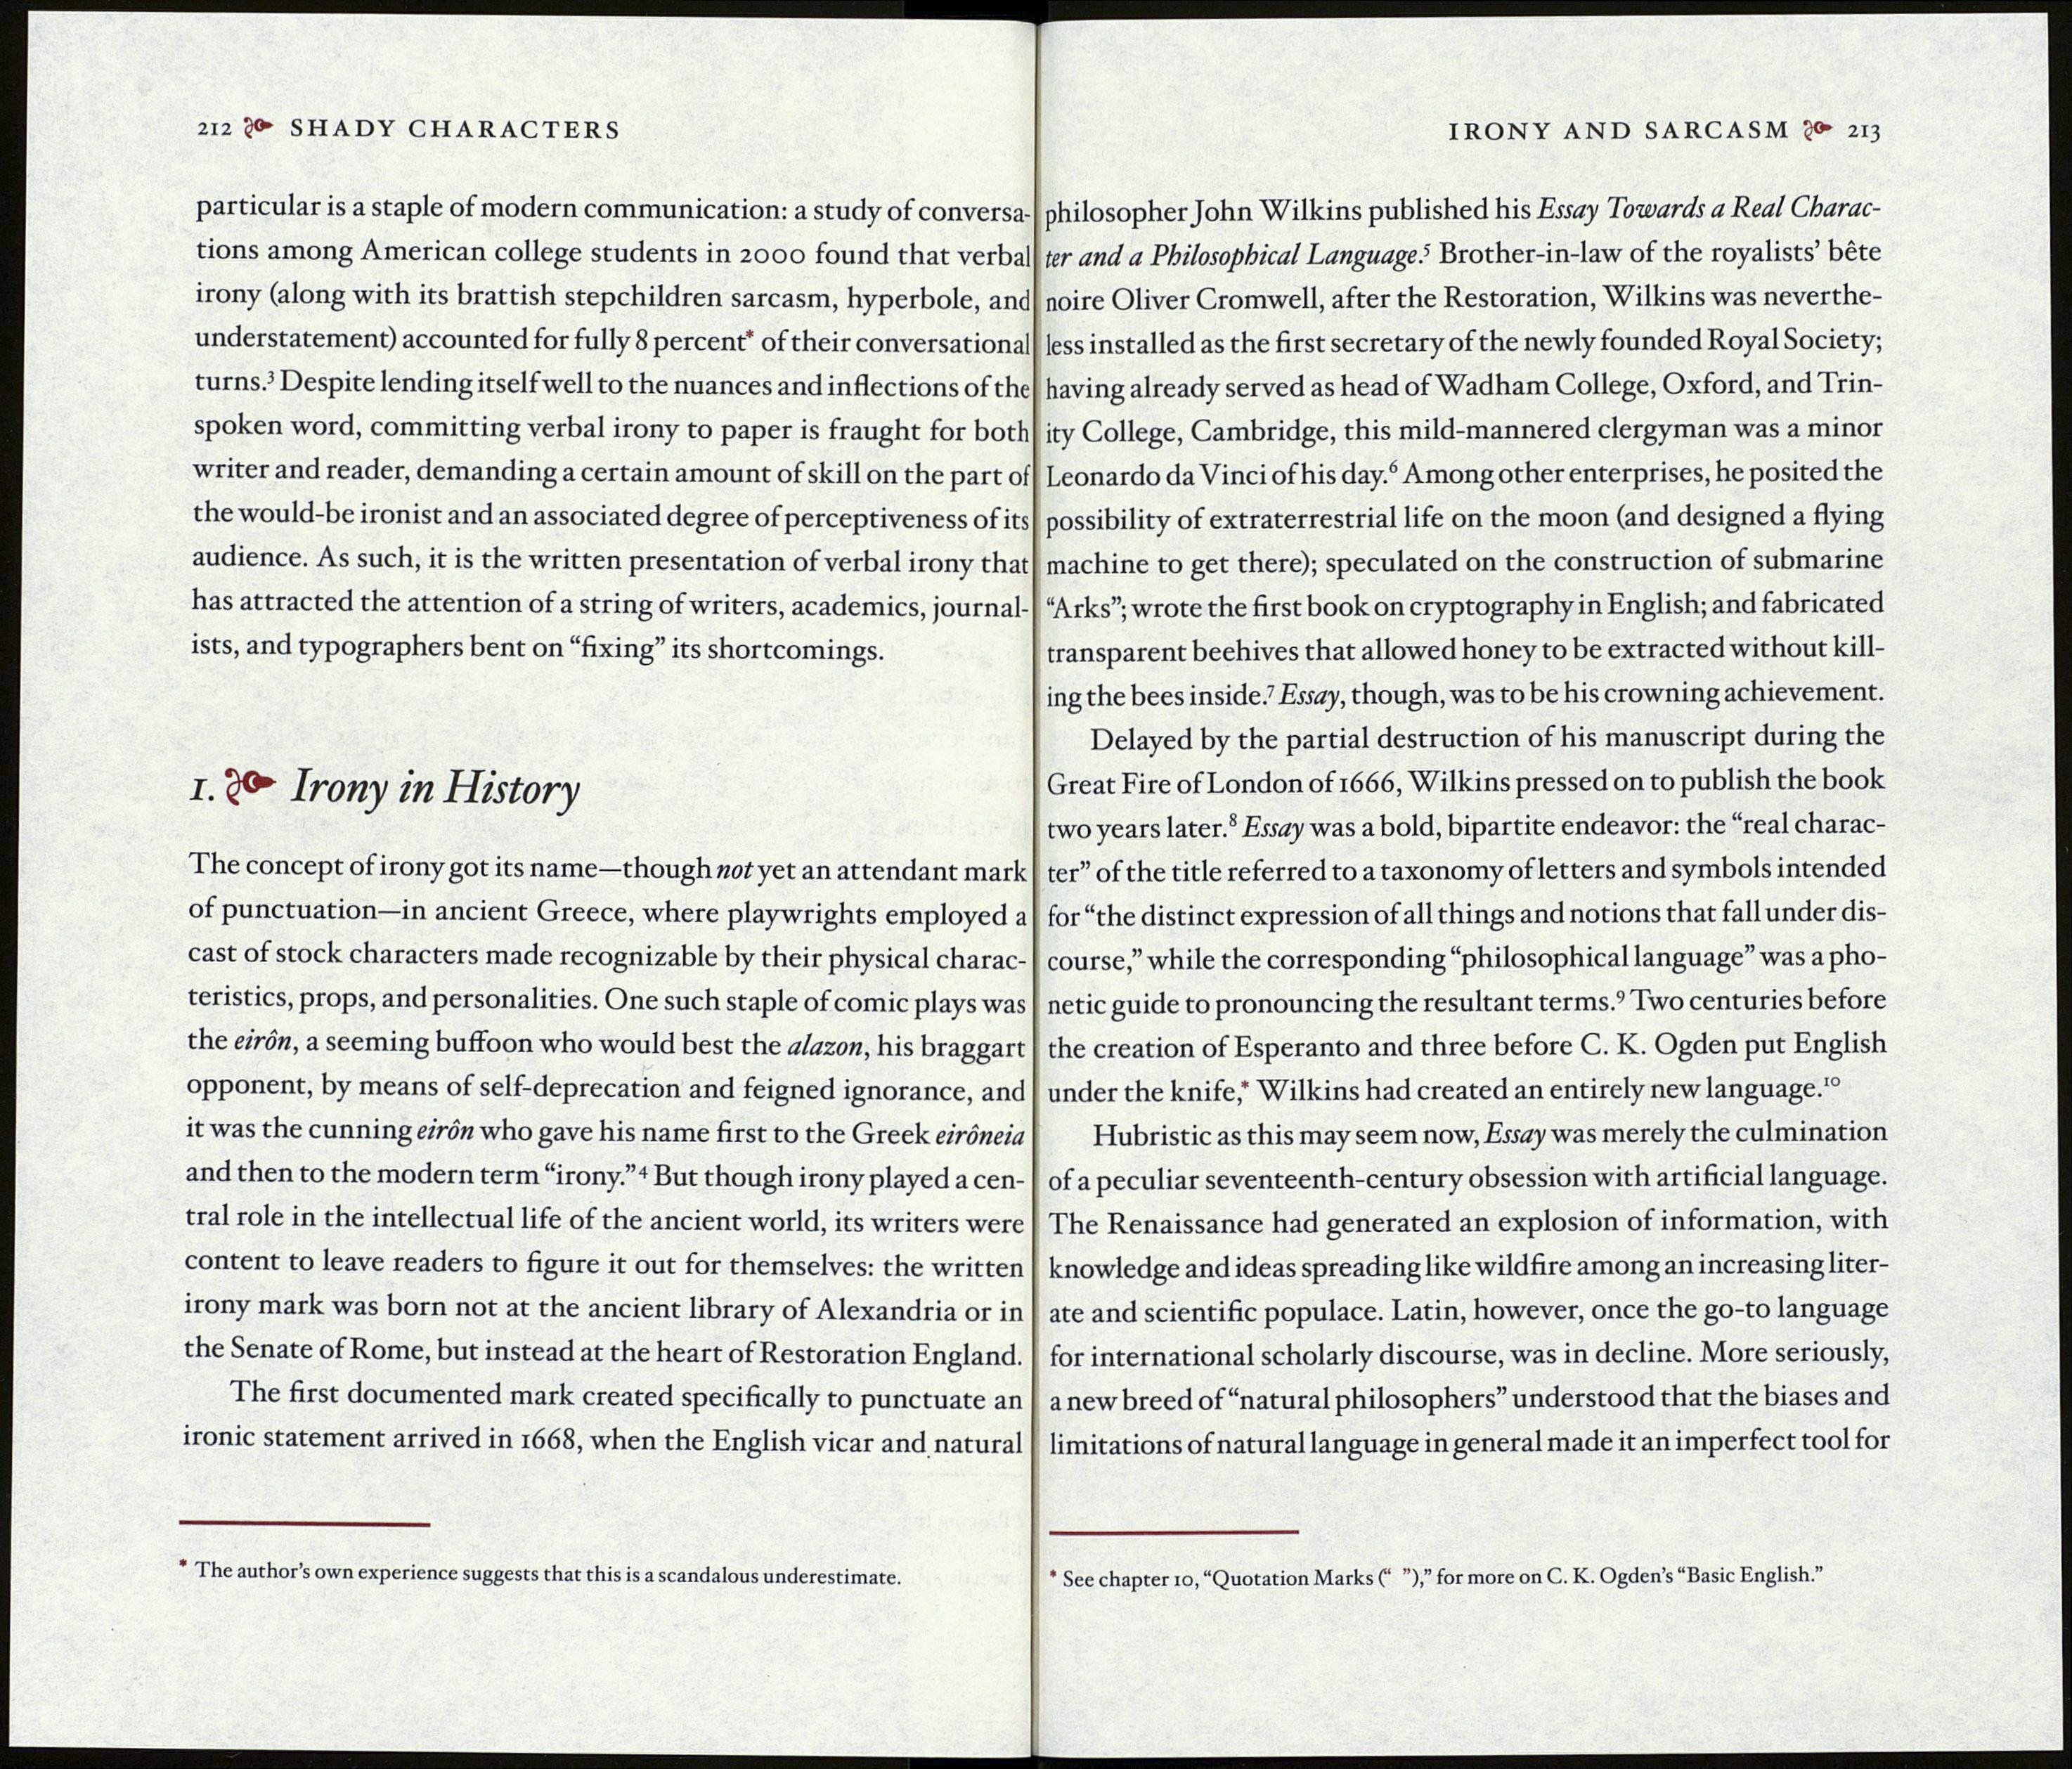 212 SHADY CHARACTERS
particular is a staple of modern communication: a study of conversa-
tions among American college students in 2000 found that verbal
irony (along with its brattish stepchildren sarcasm, hyperbole, and
understatement) accounted for fully 8 percent* of their conversational
turns.³ Despite lending itself well to the nuances and inflections of the
spoken word, committing verbal irony to paper is fraught for both
writer and reader, demanding a certain amount of skill on the part of
the would-be ironist and an associated degree of perceptiveness of its
audience. As such, it is the written presentation of verbal irony that
has attracted the attention of a string of writers, academics, journal-
ists, and typographers bent on “fixing” its shortcomings.
1. Irony in History
The concept of irony got its name—though not yet an attendant mark
of punctuation—in ancient Greece, where playwrights employed a
cast of stock characters made recognizable by their physical charac-
teristics, props, and personalities. One such staple of comic plays was
the eirôn, a seeming buffoon who would best the alazon, his braggart
opponent, by means of self-deprecation and feigned ignorance, and
it was the cunning eirôn who gave his name first to the Greek eirôneia
and then to the modern term “irony.”⁴ But though irony played a cen-
tral role in the intellectual life of the ancient world, its writers were
content to leave readers to figure it out for themselves: the written
irony mark was born not at the ancient library of Alexandria or in
the Senate of Rome, but instead at the heart of Restoration England.
The first documented mark created specifically to punctuate an
ironic statement arrived in 1668, when the English vicar and natural
* The author’s own experience suggests that this is a scandalous underestimate.
IRONY AND SARCASM 213
philosopher John Wilkins published his Essay Towards a Real Charac-
ter and a Philosophical Language.⁵ Brother-in-law of the royalists’ bête
noire Oliver Cromwell, after the Restoration, Wilkins was neverthe-
less installed as the first secretary of the newly founded Royal Society;
having already served as head of Wadham College, Oxford, and Trin-
ity College, Cambridge, this mild-mannered clergyman was a minor
Leonardo da Vinci of his day.⁶ Among other enterprises, he posited the
possibility of extraterrestrial life on the moon (and designed a flying
machine to get there); speculated on the construction of submarine
“Arks”; wrote the first book on cryptography in English; and fabricated
transparent beehives that allowed honey to be extracted without kill-
ing the bees inside.⁷ Essay, though, was to be his crowning achievement.
Delayed by the partial destruction of his manuscript during the
Great Fire of London of 1666, Wilkins pressed on to publish the book
two years later.⁸ Essay was a bold, bipartite endeavor: the “real charac-
ter” of the title referred to a taxonomy of letters and symbols intended
for “the distinct expression of all things and notions that fall under dis-
course,” while the corresponding “philosophical language” was a pho-
netic guide to pronouncing the resultant terms.⁹ Two centuries before
the creation of Esperanto and three before C. K. Ogden put English
under the knife,* Wilkins had created an entirely new language.¹⁰
Hubristic as this may seem now, Essay was merely the culmination
of a peculiar seventeenth-century obsession with artificial language.
The Renaissance had generated an explosion of information, with
knowledge and ideas spreading like wildfire among an increasing liter-
ate and scientific populace. Latin, however, once the go-to language
for international scholarly discourse, was in decline. More seriously,
a new breed of “natural philosophers” understood that the biases and
limitations of natural language in general made it an imperfect tool for
* See chapter 10, “Quotation Marks (“ ”),” for more on C. K. Ogden’s “Basic English.”